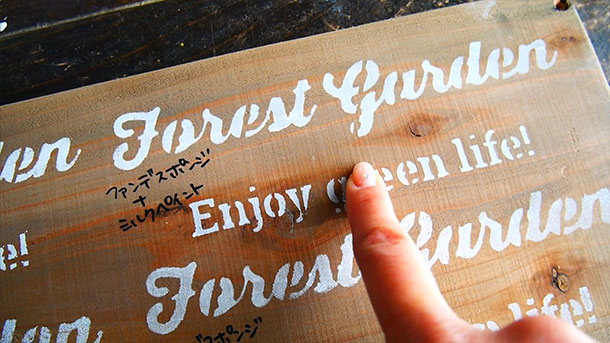 en Forest Garden
ファンデスポンジ
+
ミルクペイント
Enjoy green life!
e!
Forest Garden
en
スポンジ
life!